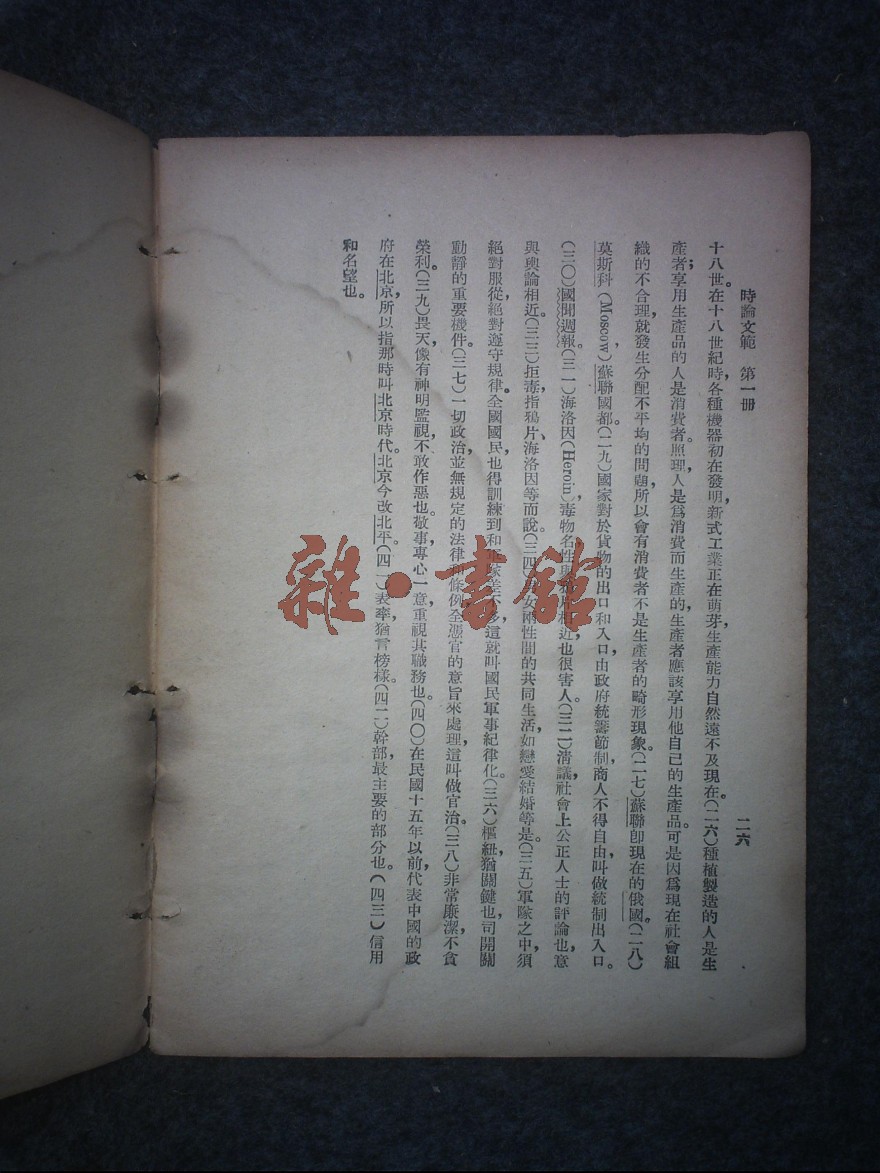 時論文範 第一冊 二六
十八世。在十八世紀時，各種機器初在發明，新式工業正在萌芽，生產能力自然遠不及現在。(二六)種植製造的人是生
產者；享用生產品的人是消費者。照理，人是爲消費而生產的，生產者應該享用他自己的生產品。可是因爲現在社會組
織的不合理，就發生分配不平均的問題，所以會有消費者不是生產者的畸形現象。(二七)蘇聯卽現在的俄國。(二八)
莫斯科(Moscow)蘇聯國都。(二九)國家對於貨物的出口和入口，由政府統籌節制，商人不得自由，叫做統制出入口。
(三〇)國聞週報。(三一)海洛因(Heroin)毒物名，性與鴉片相近，也很害人。(三二)清議，社會上公正人士的評論也，意
與輿論相近。(三三)拒毒，指鴉片、海洛因等而說。(三四)男女兩性間的共同生活，如戀愛結婚等是。(三五)軍隊之中，須
絕對服從，絕對遵守規律。全國國民，也得訓練到和軍隊差不多，這就叫國民軍事紀律化。(三六)樞紐，猶關鍵也，司開關
動靜的重要機件。(三七)一切政治，並無規定的法律和條例，全憑官的意旨來處理，這叫做官治。(三八)非常廉潔，不貪
榮利。(三九)畏天，像有神明監視，不敢作惡也。敬事，專心一意，重視其職務也。(四〇)在民國十五年以前，代表中國的政
府在北京，所以指那時叫北京時代。北京今改北平。(四一)表率，猶言榜樣。(四二)幹部，最主要的部分也。(四三)信用
和名望也。
雜·書館